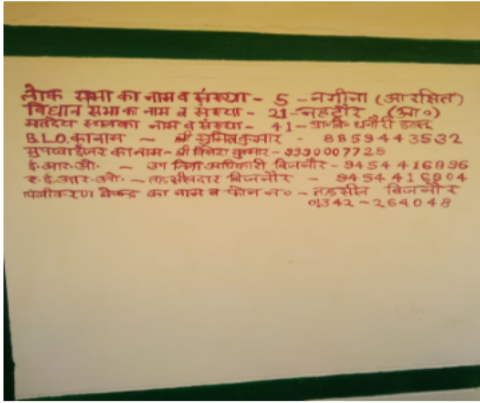 लोक सभा का नाम व संख्या - 5 - नगीना (आरक्षित)
विधान सभा का नाम व संख्या - 21 - नहटौर (आ०)
मतदेय स्थल का नाम व संख्या - 41 - प्रा०वि०
B.L.O. का नाम - श्री सुनिल कुमार - 8859443532
सुपरवाईजर का नाम - श्री कुमार - 9990007728
ई.आर.ओ. - उप जिला अधिकारी बिजनौर - 9454416896
ए.ई.आर.ओ. - तहसीलदार बिजनौर - 9454416904
पंजीकरण केन्द्र का नाम व फोन न० - तहसील बिजनौर
01342-264048